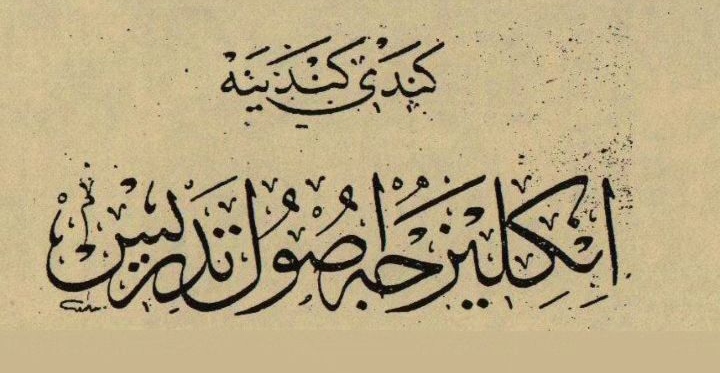 كندی كندینه
انكلیزجه اصول تدریسی